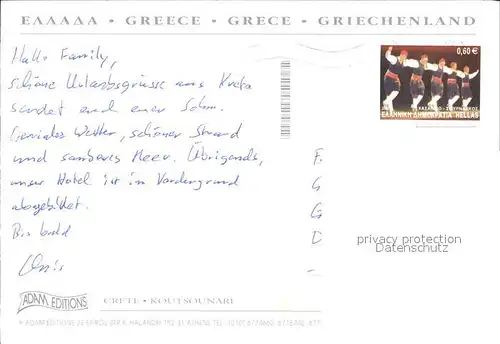 ΕΛΛΑΔΑ • GREECE • GRECE • GRIECHENLAND
0,60 €
ΕΛΛΗΝΙΚΗ ΔΗΜΟΚΡΑΤΙΑ HELLAS
Hallo Family,
schöne Urlaubsgrüsse aus Kreta
sendet euch euer Sohn.
Geniales Wetter, schöner Strand
und sauberes Meer. Übrigends,
unser Hotel ist im Vordergrund
abgebildet.
Bis bald
F
G
G
D
privacy protection
Datenschutz
ADAM EDITIONS
CRETE • KOUTSOUNARI
ADAM EDITIONS